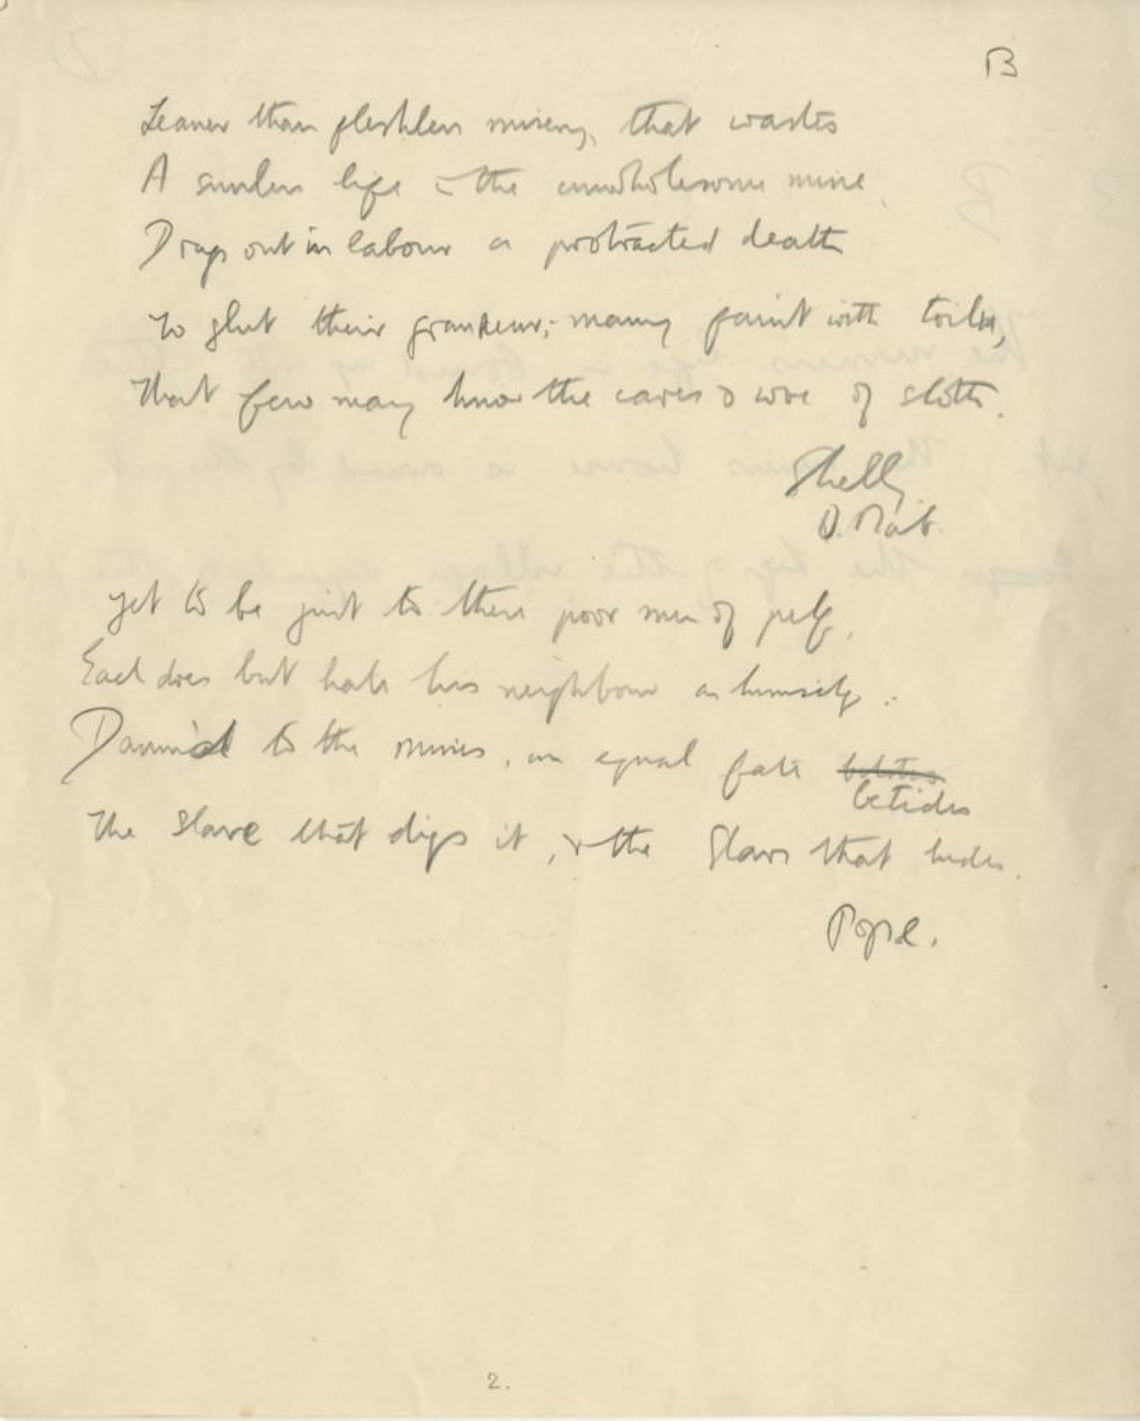 B
Leaner than fleshless misery, that wastes
A sunless life in the unwholesome mine,
Drags out in labour a protracted death
To glut their grandeur; many faint with toil,
That few may know the cares & woe of sloth.
Shelly
Q. Mab.
Yet to be just to these poor men of pelf,
Each does but hate his neighbour as himself:
Damn'd to the mines, an equal fate
betides
The Slave that digs it, & the Slave that hides.
Pope.
2.